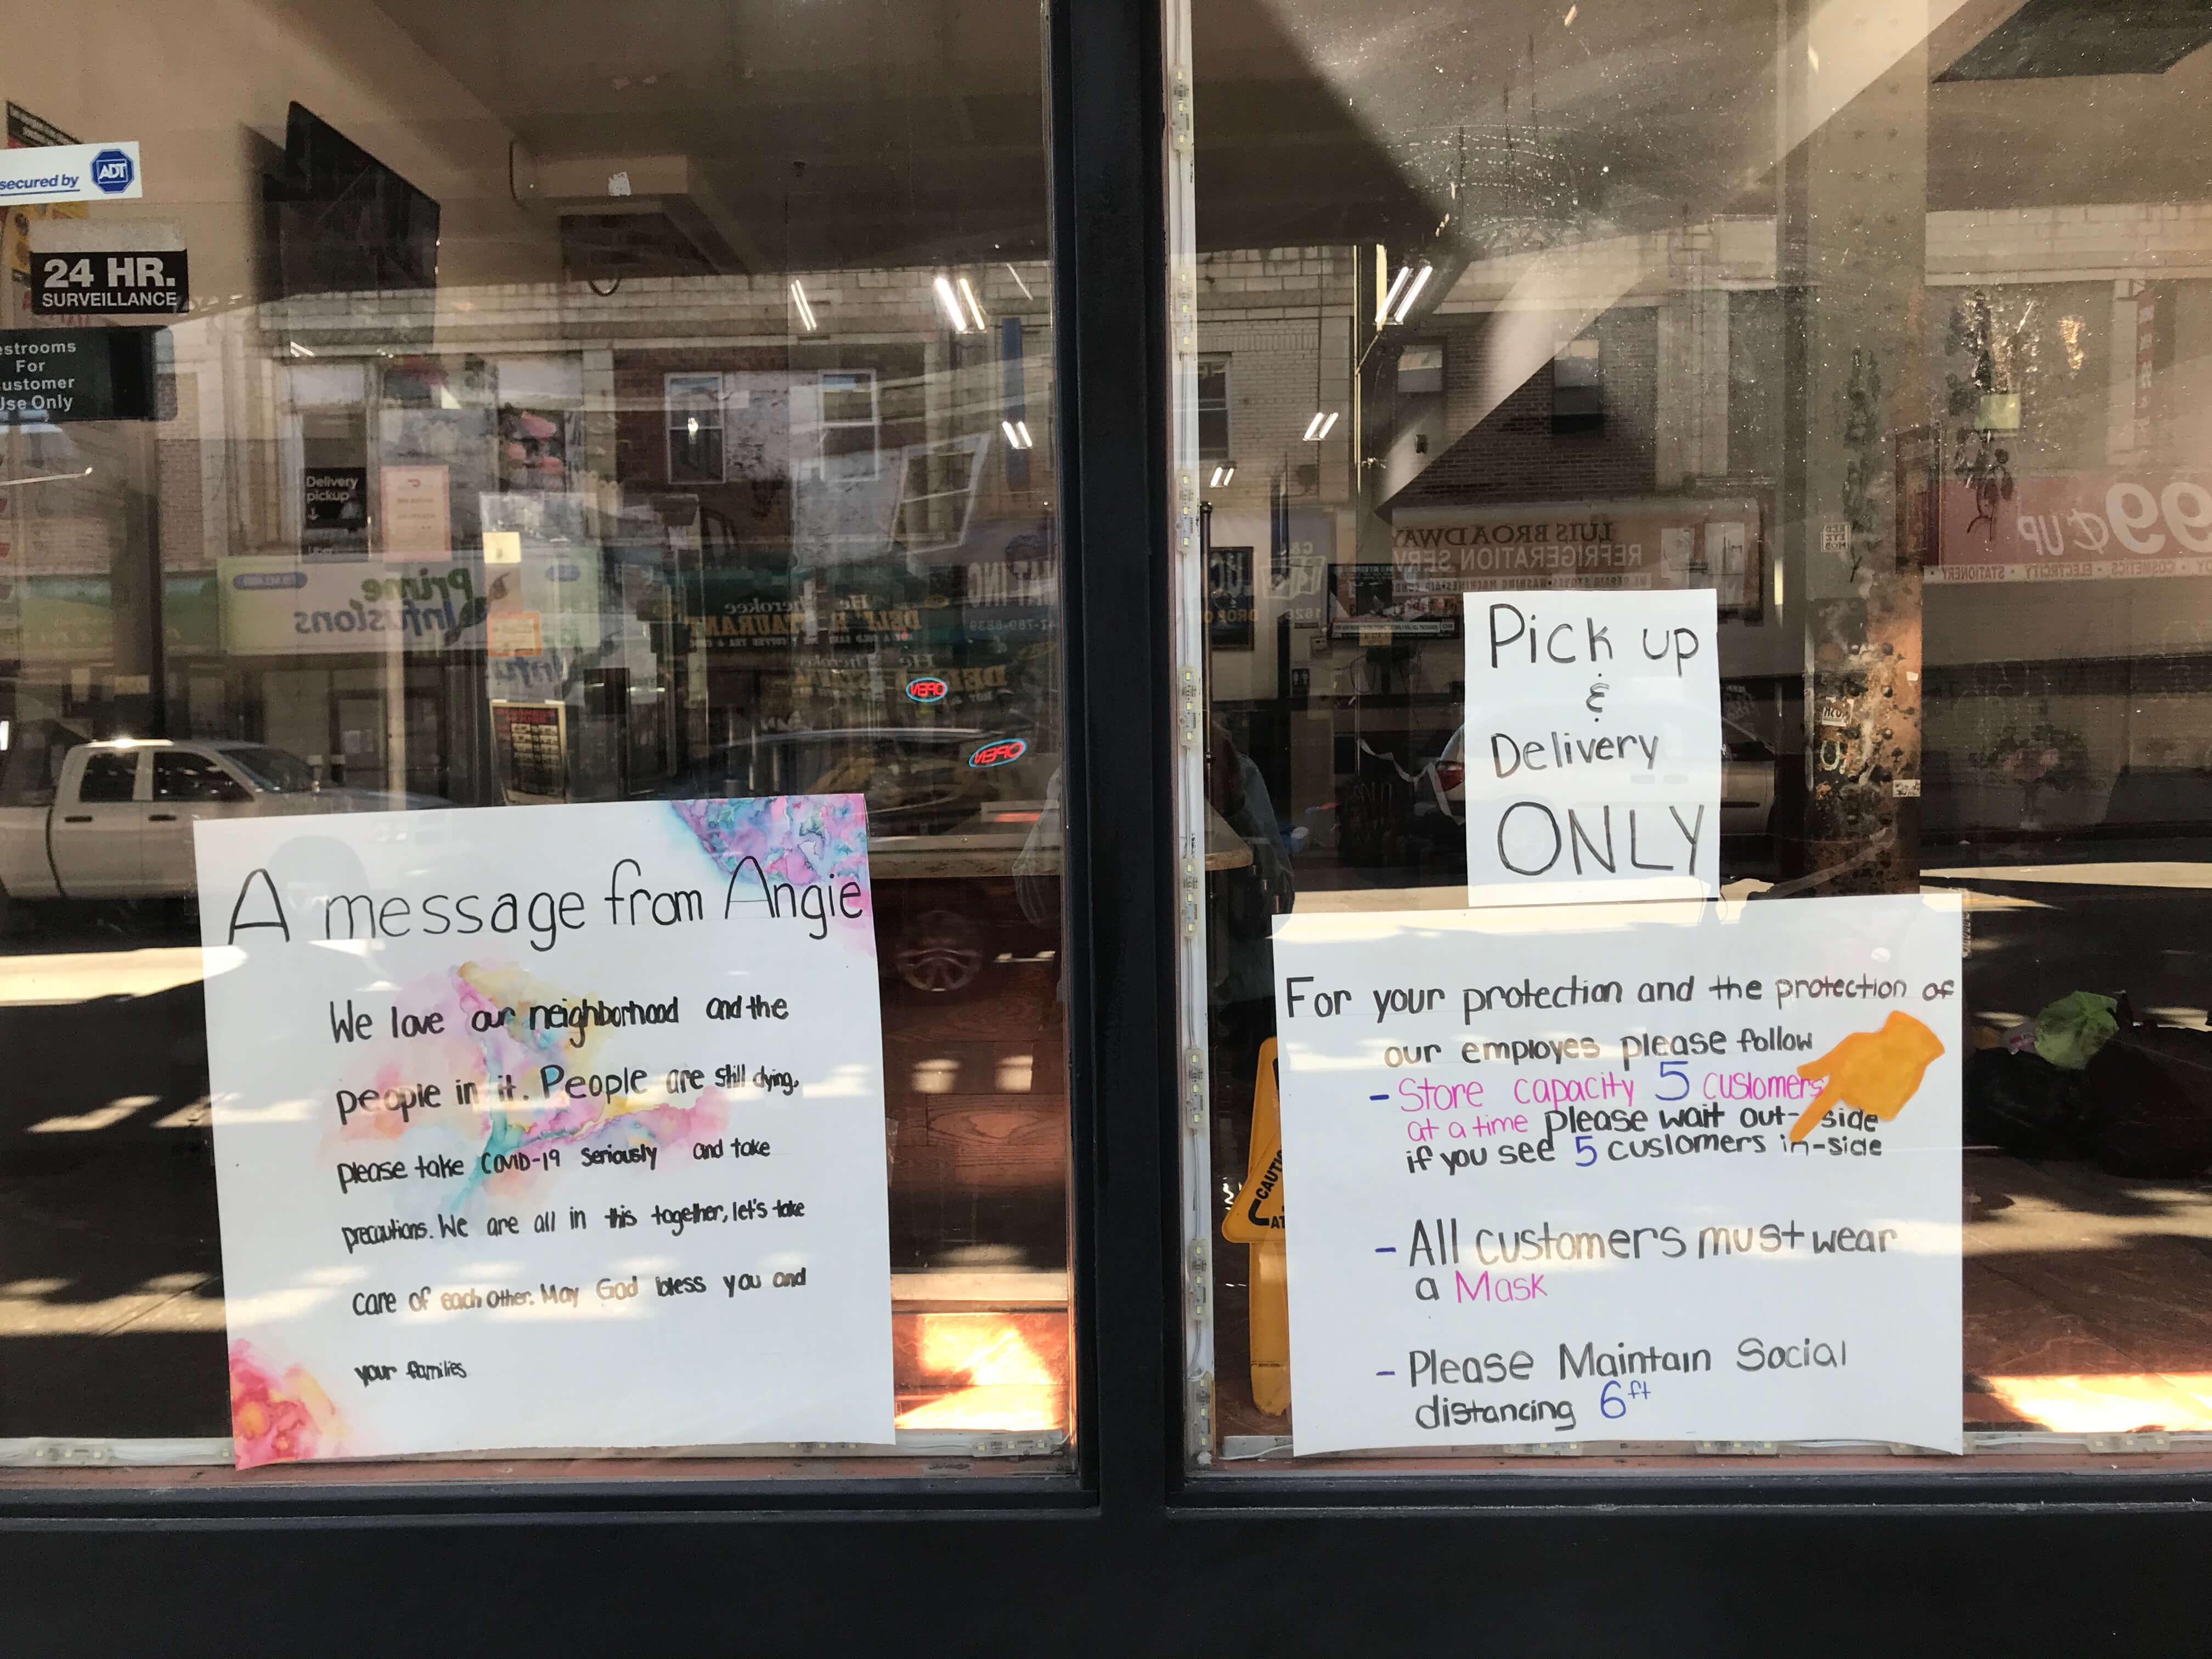 secured by ADT
24 HR.
SURVEILLANCE
For
Use Only
Delivery
pickup
A message from Angie
We love our neighborhood and the
people in it. People are still dying,
please take COVID-19 seriously and take
precautions. We are all in this together, let's take
care of each other. May God bless you and
your families
Prime
Infusions
Cherokee
OPEN
OPEN
LUIS BROADWAY
REFRIGERATION SERV
99¢ UP
COSMETICS • ELECTRICITY • STATIONERY
Pick up
&
Delivery
ONLY
For your protection and the protection of
our employes please follow
- Store capacity 5 customers
at a time please wait out-side
if you see 5 customers in-side
- All customers must wear
a Mask
- Please Maintain Social
distancing 6ft
CAUTI